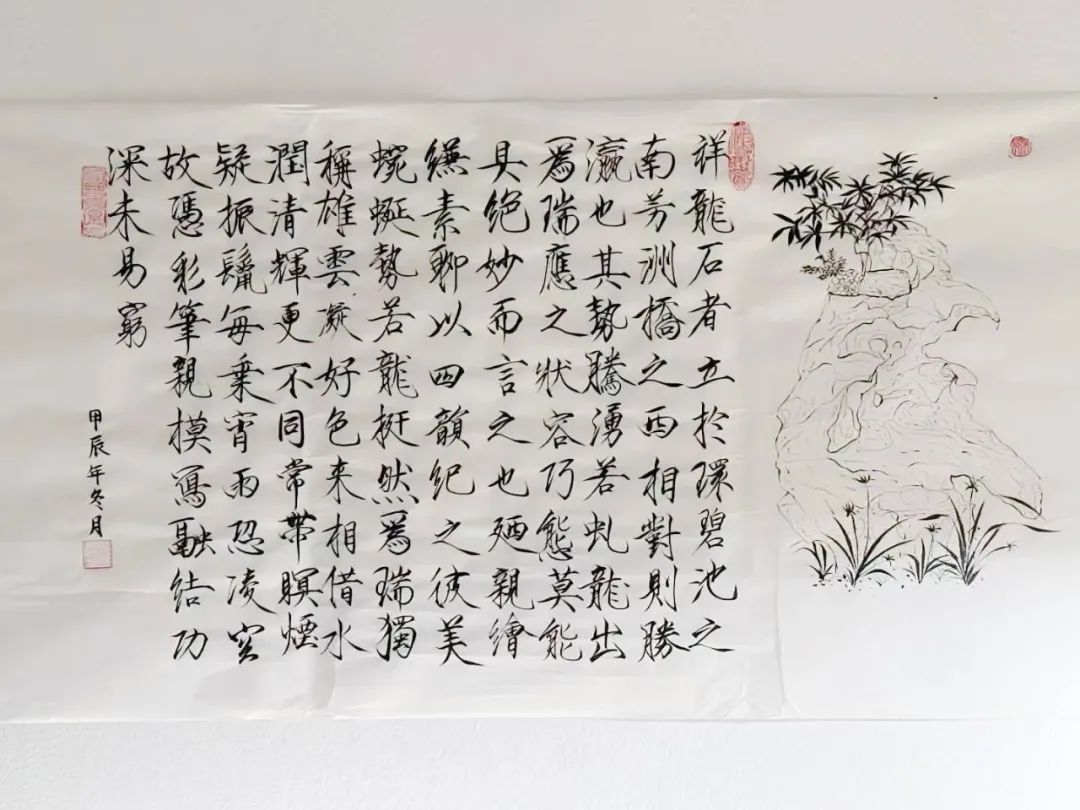 祥龍石者立於環碧池之
南芳洲橋之西相對則勝
瀛也其勢騰湧若虬龍出
爲瑞應之狀容巧態莫能
具絕妙而言之也廼親繪
縑素聊以四韻紀之彼美
蜿蜒勢若龍挺然爲瑞獨
稱雄雲凝好色来相借水
潤清輝更不同常帶瞑煙
疑振鬣每乗宵雨恐凌空
故憑彩筆親模寫融結功
深未易窮
甲辰年冬月